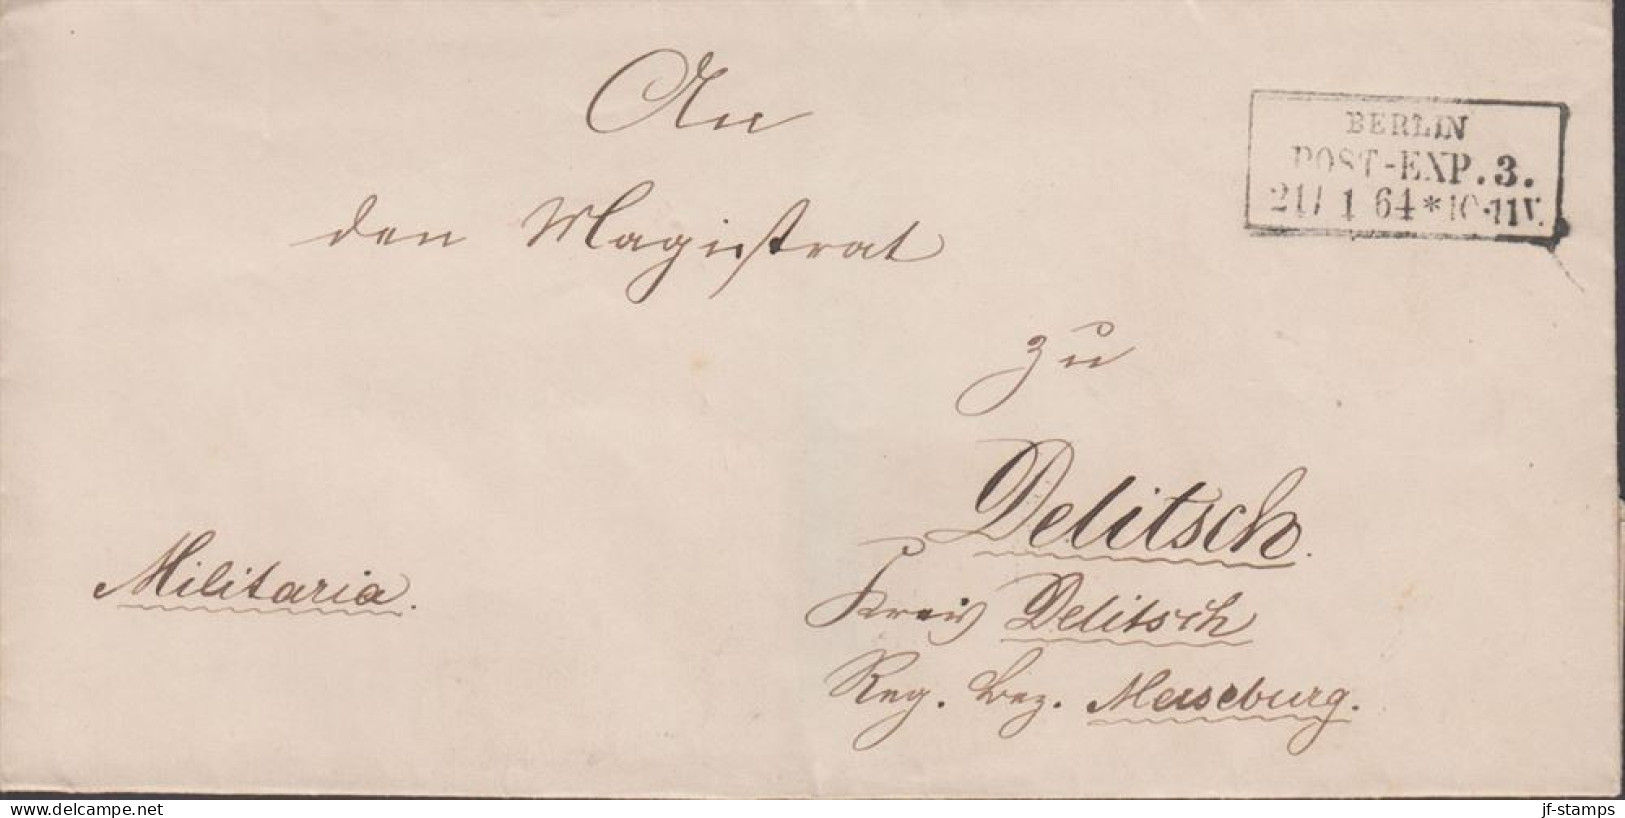 An
den Magistrat
zu
Delitsch.
Kreis Delitsch
Reg. Bez. Merseburg.
Militaria.
BERLIN
POST-EXP.3.
21/ 1 64 * 10-11V.
www.delcampe.net
jf-stamps